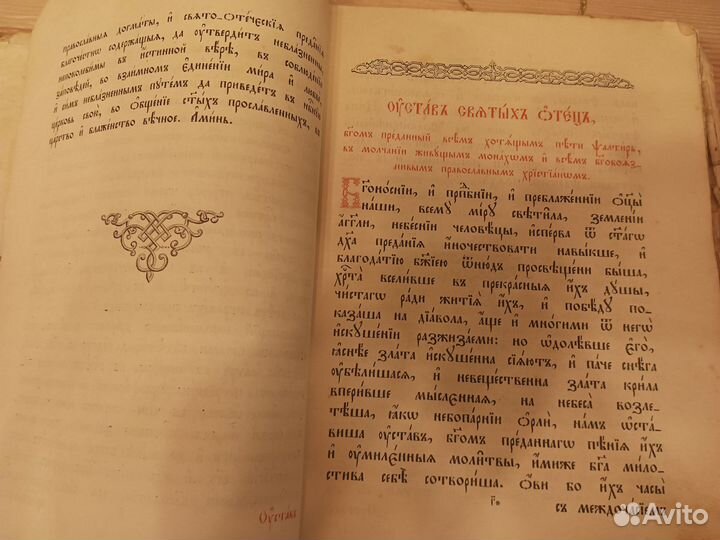 правосла́вныя догма́ты, и҆ свято-ѻ҆те́ческїѧ преда̑нїѧ
благоче́стнѡ содержа́щыѧ, да ᲂу҆тверди́тъ неблазненнѡ
непоколи́бимы въ и҆́стинной вѣ́рѣ, въ соблюде́нїи
за́повѣдей, во взаи́мномъ є҆дине́нїи ми́ра и҆ любве̑
и҆ си́мъ неблазненнымъ путе́мъ да приведе́тъ въ
церковь свою̀, во ѻ҆бще́нїе ст҃ы́хъ просла́вленныхъ, въ
ца́рство и҆ блаже́нство вѣ́чное. А҆ми́нь.
Оу҆ста́въ
Оу҆ста́въ свѧты́хъ ѻ҆те́цъ,
бг҃омъ пре́данный всѣ̑мъ хотѧ́щымъ пѣ́ти ѱалти́рь,
въ молча́нїи живу́щымъ мона́хѡмъ и҆ всѣ̑мъ бг҃обоѧз-
ли́вымъ правосла́внымъ хрїстїа́нѡмъ.
Бг҃оно́снїи, и҆ прпⷣбнїи, и҆ пребла́женнїи ѻ҆ц҃ы̀
на́ши, всемꙋ̀ мі́рꙋ свѣти̑ла, земле́нїи
а҆́гг҃ли, небе́снїи человѣ́цы, и҆спе́рва ѿ ст҃а́гѡ
дх҃а преда̑нїѧ и҆́ночествовати навы́кше, и҆
благода́тїю бж҃їею ѿню́дъ просвѣще́ни бы́ша,
хрⷭ҇та̀ всели́вше въ прекра̑сныѧ и҆́хъ дꙋ́шы,
чи́стагѡ ра́ди житїѧ̀ и҆́хъ, и҆ побѣ́дꙋ по-
каза́ша на дїа́вола, а҆́ще и҆ мно́гими ѿ негѡ̀
и҆скꙋше́нїи разжиза́еми: но ѡ҆долѣ́вше є҆го̀,
ꙗ҆снѣ́е зла́та и҆скꙋше́нна сїѧ́ютъ, и҆ па́че снѣ́га
ᲂу҆бѣли́шасѧ, и҆ невеще́ственна зла́та крила̀
впери́вше мы́сленнаѧ, на небеса̀ возле-
тѣ́ша, ꙗ҆́кѡ небопа́рнїи ѻ҆рлѝ, на́мъ ѡ҆ста́-
виша ᲂу҆ста́въ, бг҃омъ пре́даннагѡ пѣ́нїѧ и҆́хъ
и҆ ᲂу҆миле́нныѧ моли̑твы, и҆́миже бг҃а ми́ло-
стива себѣ̀ сотвори́ша. Ѻ҆́ви бо и҆́хъ часы̀
г҃.
съ междоча́сїемъ
Avito